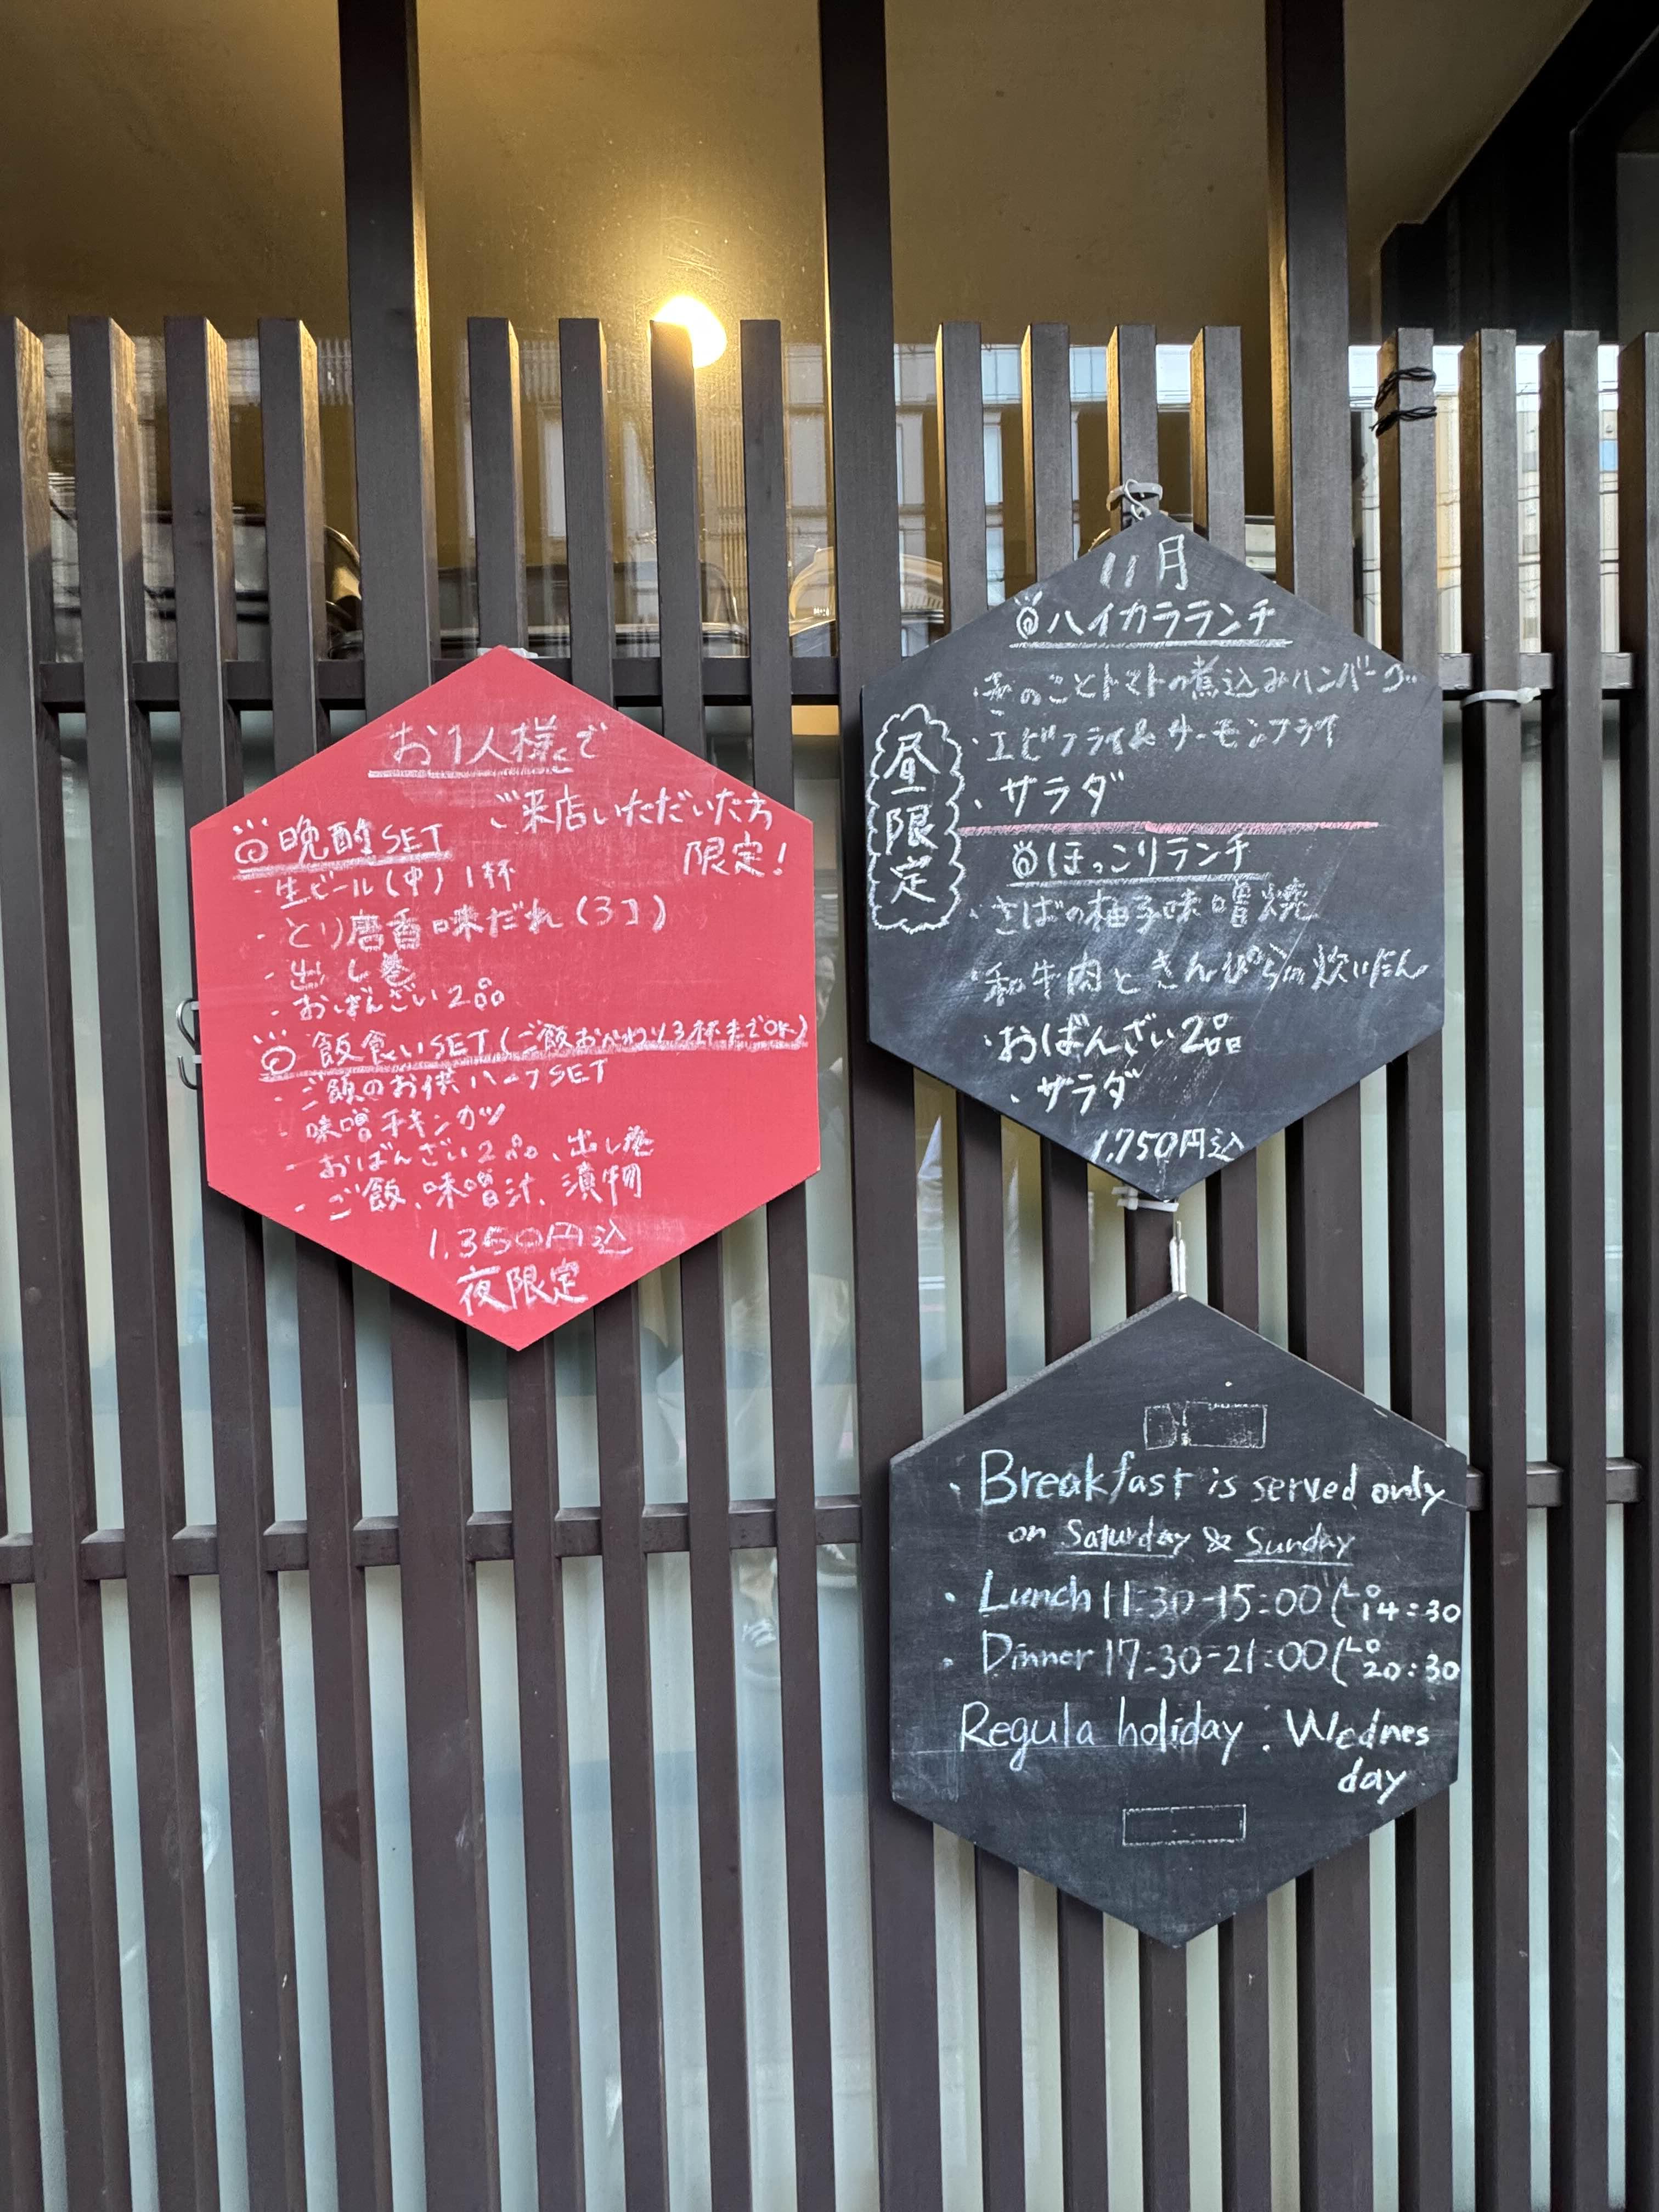 お1人様で
ご来店いただいた方
限定!
晩酌SET
・生ビール(中)1杯
・とり唐香味だれ(3コ)
・出し巻
・おばんざい2品
飯食いSET(ご飯おかわり3杯までOK)
・ご飯のお供ハーフSET
・味噌チキンカツ
・おばんざい2品、出し巻
・ご飯、味噌汁、漬物
1,350円込
夜限定
11月
ハイカラランチ
昼限定
・きのことトマトの煮込みハンバーグ
・エビフライ&サーモンフライ
・サラダ
ほっこりランチ
・さばの柚子味噌焼
・和牛肉ときんぴらの炊いたん
・おばんざい2品
・サラダ
1,750円込
・Breakfast is served only
on Saturday & Sunday
・Lunch 11:30-15:00 (LO 14:30
・Dinner 17:30-21:00 (LO 20:30
Regula holiday : Wednes
day